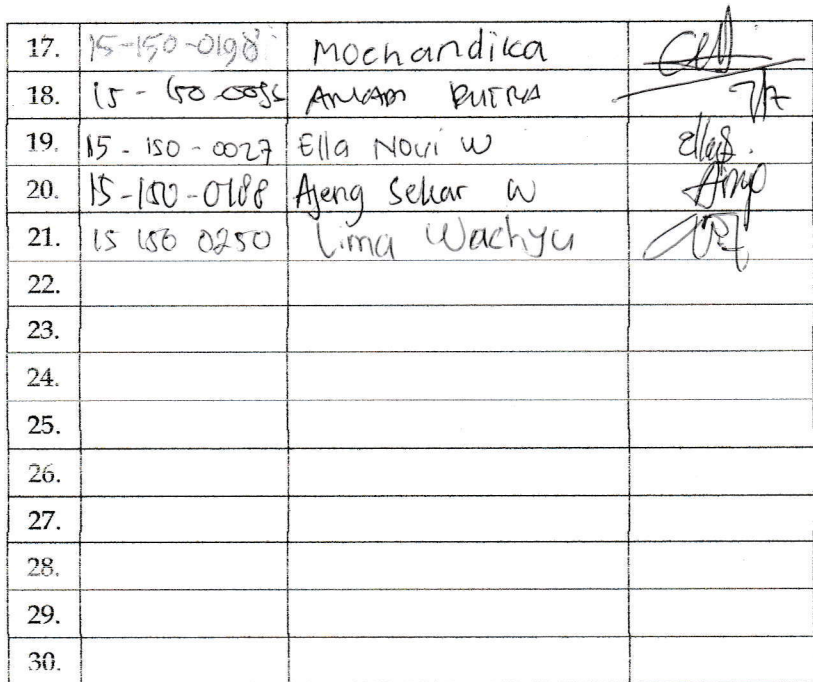 17. 15-150-0198 Mochandika
18. PUTRA
19. 15-150-0027 Ella Novi W Ella
20. 15-150-0188 Ajeng Sekar W
21. 15 150 0250 Lima Wachyu
22.
23.
24.
25.
26.
27.
28.
29.
30.